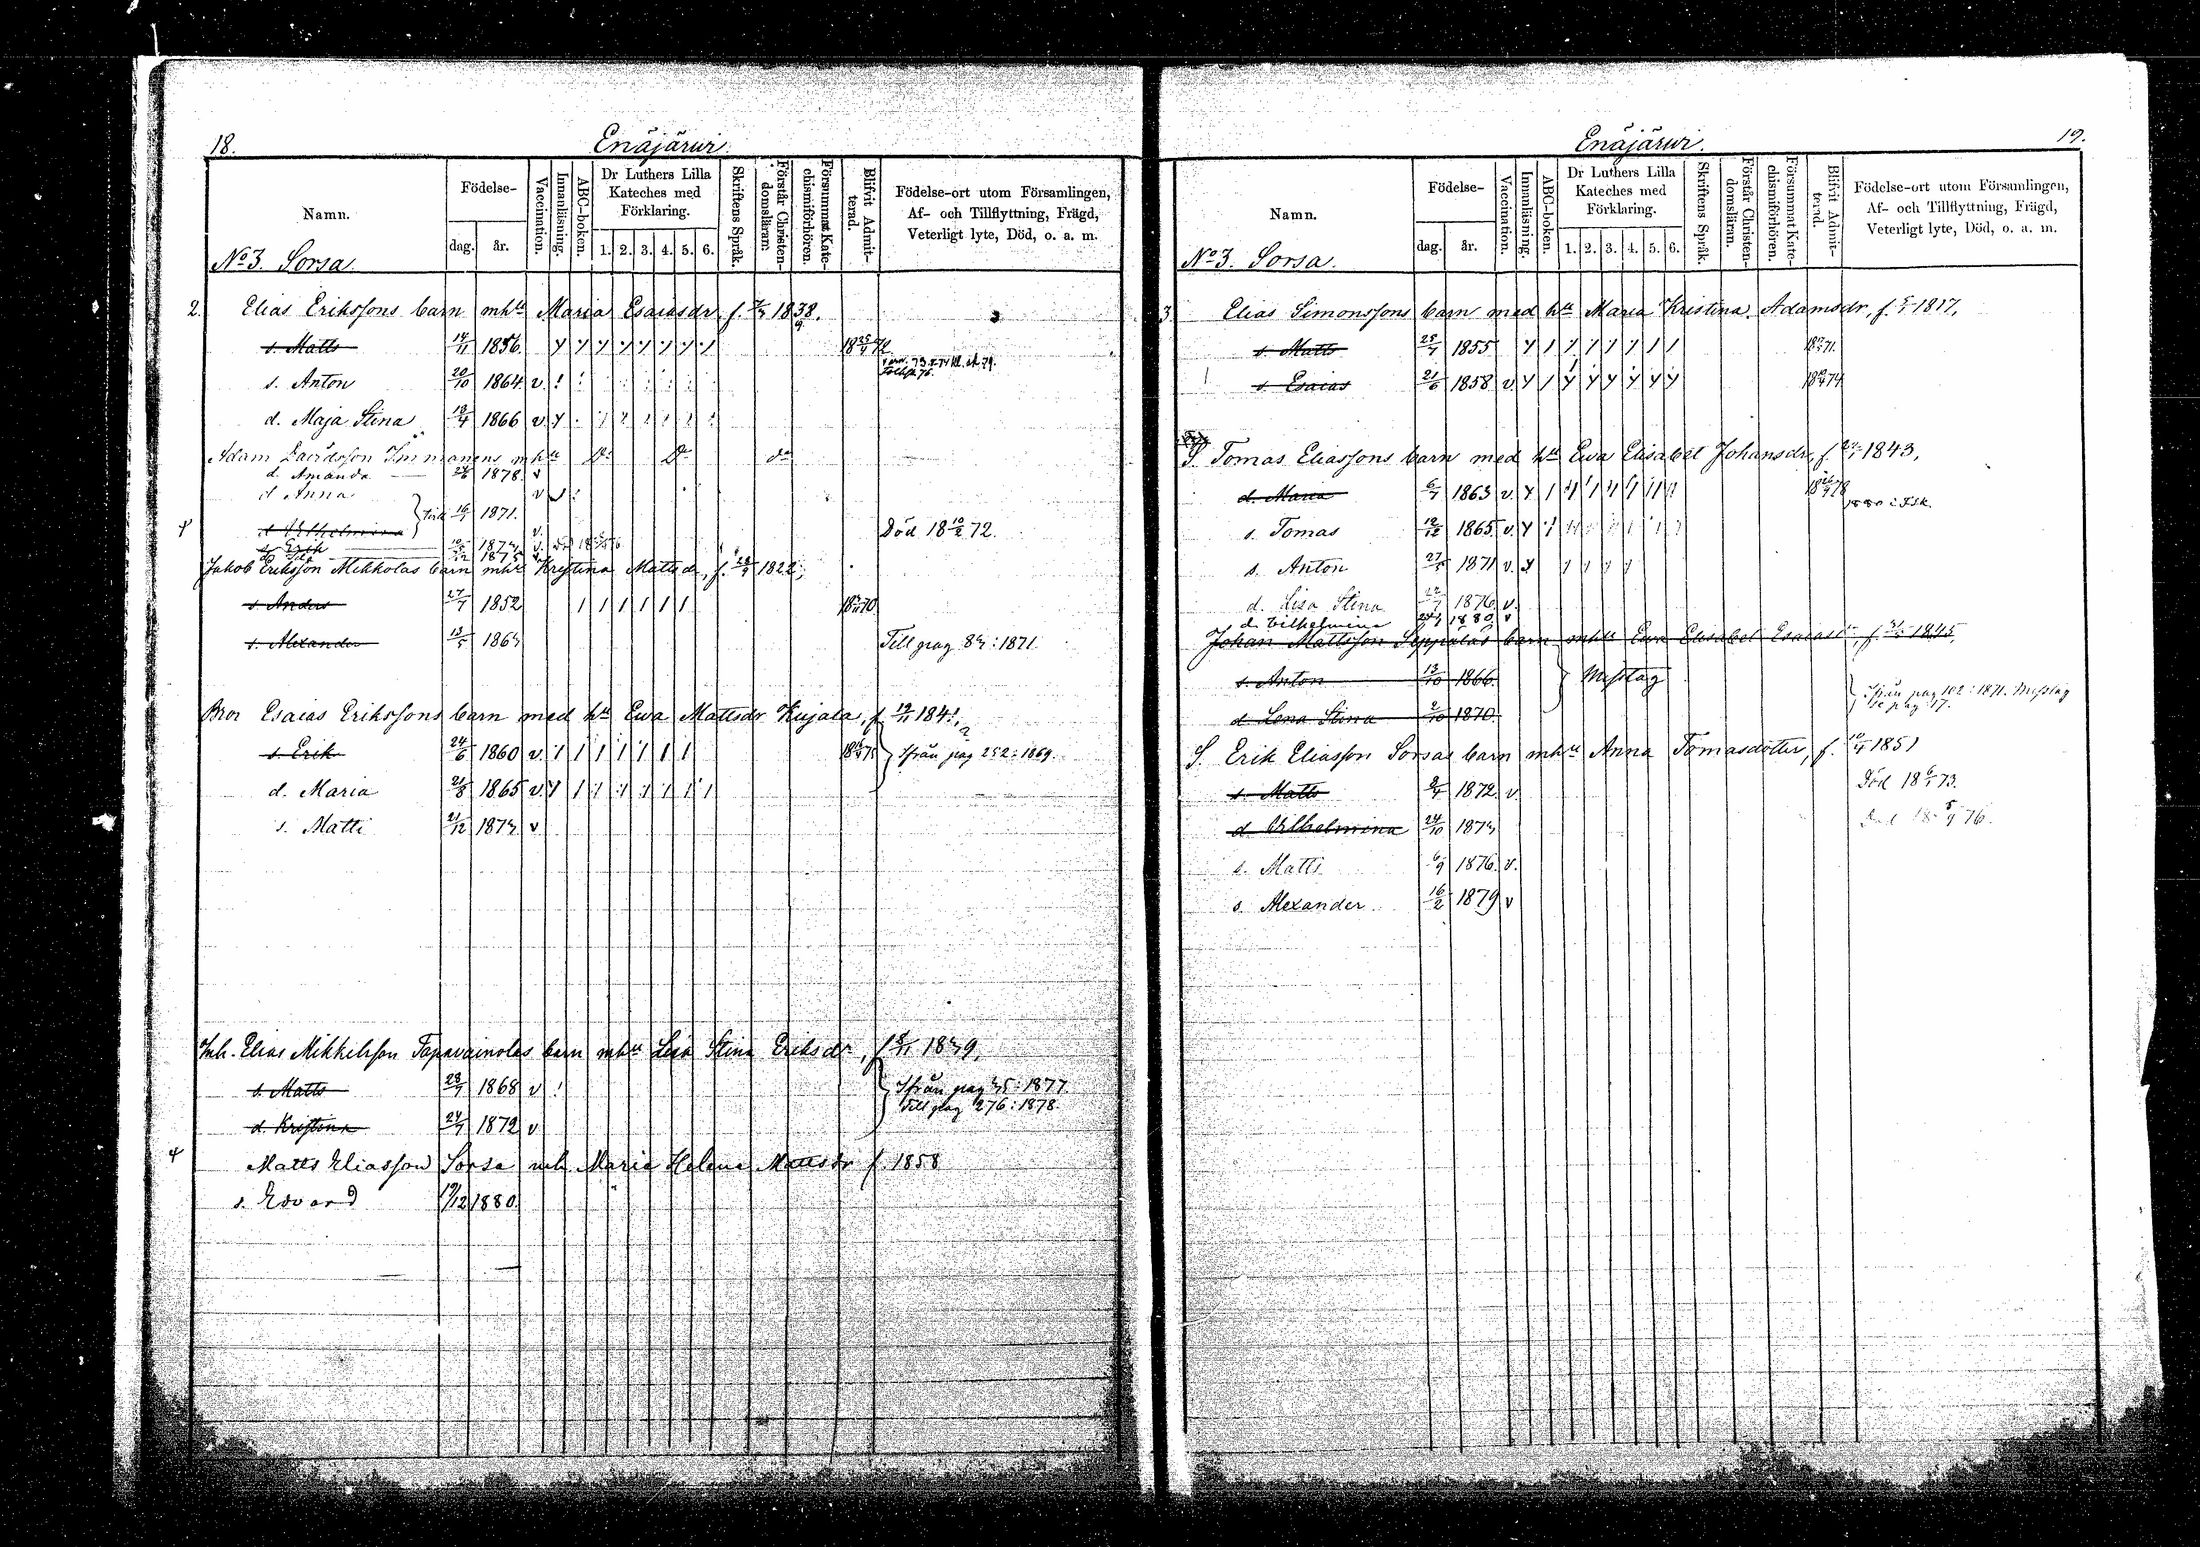 18.
Enäjärwi.
Namn.
Födelse-
dag.
år.
Vaccination.
Innanläsning.
ABC-boken.
Dr Luthers Lilla
Kateches med
Förklaring.
1. 2. 3. 4. 5. 6.
Skriftens Språk.
Förstår Christen-
domsläran.
Försummat Kate-
chismiförhören.
Blifvit Admit-
terad.
Födelse-ort utom Församlingen,
Af- och Tillflyttning, Frägd,
Veterligt lyte, Död, o. a. m.
No 3. Sorsa.
2. Elias Erikssons barn mhu Maria Esaiasdr f. 1838.
s. Matts 14/11 1856.
s. Anton 20/10 1864 v.
d. Maja Stina 18/4 1866 v.
Adam Immonens mhu Do Do do
d. Amanda 1878. v
d. Anna v
d. Wilhelmina 16/7 1871. v. Död 18 10/2 72.
s. Erik
Jakob Eriksson Mikkolas barn mhu Kristina Mattsdr, f. 1822.
s. Anders 27/7 1852
s. Alexander 13/5 1863 Till pag 83: 1871.
Bror Esaias Erikssons barn med hu Ewa Mattsdr Kujala, f. 19/11 184
s. Erik 24/6 1860 v. Ifrån pag 252: 1869.
d. Maria 21/8 1865 v.
s. Matti 21/12 1873 v
Inh. Elias Mikkelsson Tapavainolas barn mhu Lisa Stina Eriksdr, f. 8/11 1839,
s. Matts 28/7 1868 v Ifrån pag 35: 1877.
Till pag 276: 1878.
d. Kristina 24/7 1872 v
Matts Eliasson Sorsa mh Maria Helena Mattsdr f. 1858
s. Edvard 19/12 1880.
19.
Enäjärwi.
Namn.
Födelse-
dag.
år.
Vaccination.
Innanläsning.
ABC-boken.
Dr Luthers Lilla
Kateches med
Förklaring.
1. 2. 3. 4. 5. 6.
Skriftens Språk.
Förstår Christen-
domsläran.
Försummat Kate-
chismiförhören.
Blifvit Admit-
terad.
Födelse-ort utom Församlingen,
Af- och Tillflyttning, Frägd,
Veterligt lyte, Död, o. a. m.
No 3. Sorsa.
3 Elias Simonssons barn med hu Maria Kristina Adamsdr, f. 1817,
s. Matts 25/7 1855
s. Esaias 21/6 1858 v
S. Tomas Eliassons barn med hu Ewa Elisabet Johansdr, f. 1843,
d. Maria 6/7 1863 v.
s. Tomas 12/12 1865 v.
s. Anton 27/5 1871 v.
d. Lisa Stina 1876 v.
d. Vilhelmina 1880. v
Johan Mattsson Seppäläs barn mhu Ewa Elisabet f. 1845,
s. Anton 13/10 1866. Misstag
d. Lena Stina 2/10 1870. Ifrån pag 102: 1871. Misstag
S. Erik Eliasson Sorsas barn mhu Anna Tomasdotter, f. 10/4 1851
s. Matts 1872. v. Död 18 73.
d. Wilhelmina 24/10 1873 76.
s. Matts 6/9 1876. v.
s. Alexander 16/2 1879 v